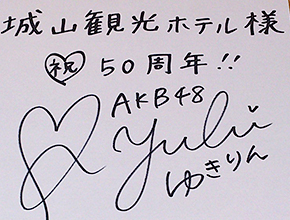 城山観光ホテル様
祝 50周年!!
AKB48
Yuki
ゆきりん